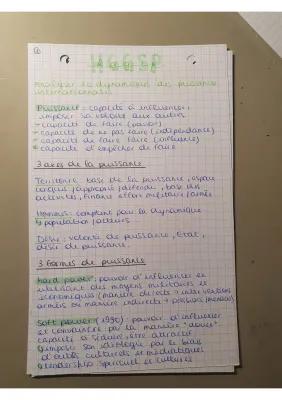 HGGSP
Analyser les dynamiques des puissances
internationales
Puissance : capacité à influencer,
imposer sa volonté aux autres
- capacité de faire (pouvoir)
- capacité de ne pas faire (indépendance)
- capacité de faire faire (influence)
- capacité d'empêcher de faire
3 axes de la puissance
Territoire : base de la puissance, espace
conquis / approprié / défendu, base des
activités, finance effort militaire / armée
Hommes : comptent pour la dynamique
population / acteurs
Désir : volonté de puissance, Etat,
désir de puissance
3 formes de puissance
Hard power : pouvoir d'influencer en
utilisant des moyens militaires et
économiques (manière directe = interventions
armées ou manière indirecte = pression / menaces)
Soft power (1990) : pouvoir d'influencer
et convaincre par la manière "douce"
capacité à séduire, être attractif
imposer son idéologie par le biais
d'outils culturels et médiatiques
leadership spirituel et culturel